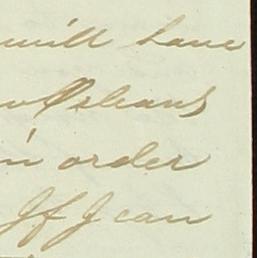 will have
w Orleans
in order
If I can